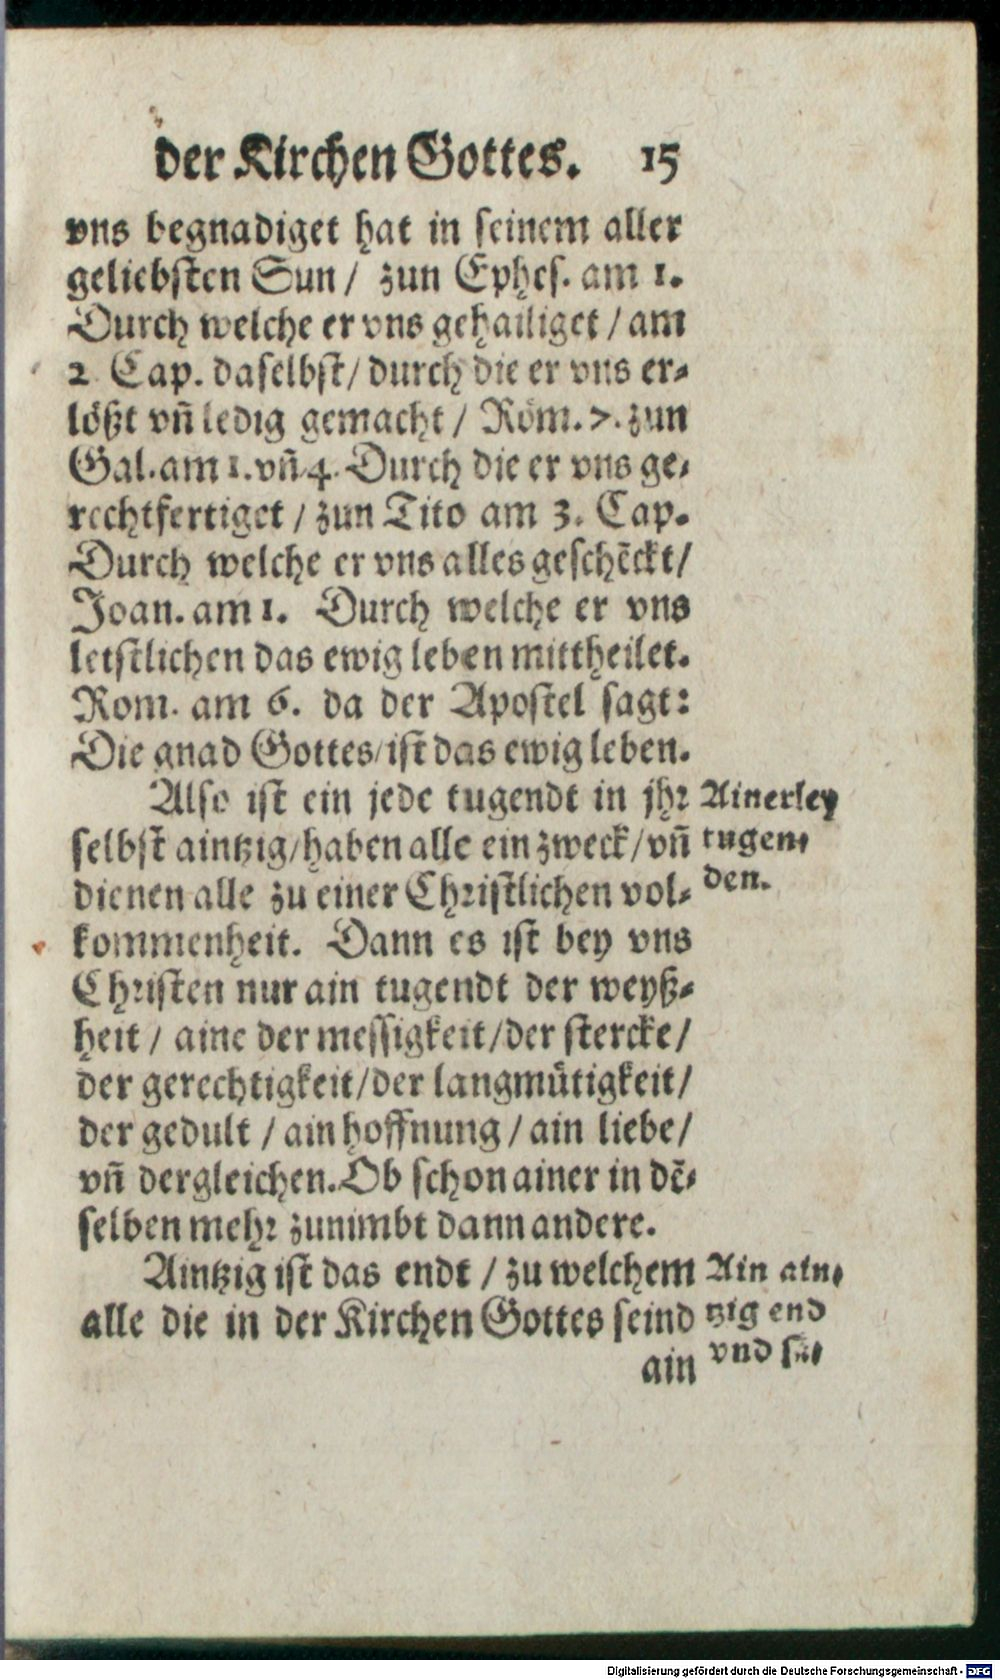 der Kirchen Gottes. 15
vns begnadiget hat in seinem aller
geliebsten Sun / zun Ephes. am 1.
Durch welche er vns gehailiget / am
2 Cap. daselbst / durch die er vns er⸗
lößt vñ ledig gemacht / Röm. 7. zun
Gal. am 1. vñ 4. Durch die er vns ge⸗
rechtfertiget / zun Tito am 3. Cap.
Durch welche er vns alles geschēckt /
Joan. am 1. Durch welche er vns
letstlichen das ewig leben mittheilet.
Rom. am 6. da der Apostel sagt:
Die gnad Gottes / ist das ewig leben.
Also ist ein jede tugendt in jhr
selbst aintzig / haben alle ein zweck / vñ
dienen alle zu einer Christlichen vol⸗
kommenheit. Dann es ist bey vns
Christen nur ain tugendt der weyß⸗
heit / aine der messigkeit / der stercke /
der gerechtigkeit / der langmütigkeit /
der gedult / ain hoffnung / ain liebe /
vñ dergleichen. Ob schon ainer in dē⸗
selben mehr zunimbt dann andere.
Ainerley
tugen⸗
den.
Aintzig ist das endt / zu welchem
alle die in der Kirchen Gottes seind
ain
Ain ain⸗
tzig end
vnd
Digitalisierung gefördert durch die Deutsche Forschungsgemeinschaft - DFG